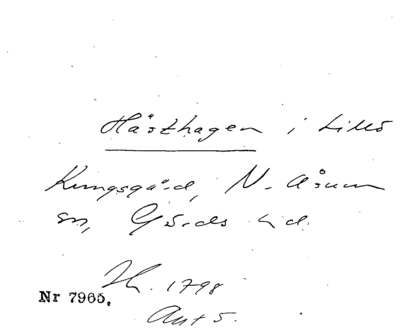 Hästhagen i Lillö
Kungsgård, N. Åsum
sn, Gärds hd.
1798
Nr 7965.
Akt 5.